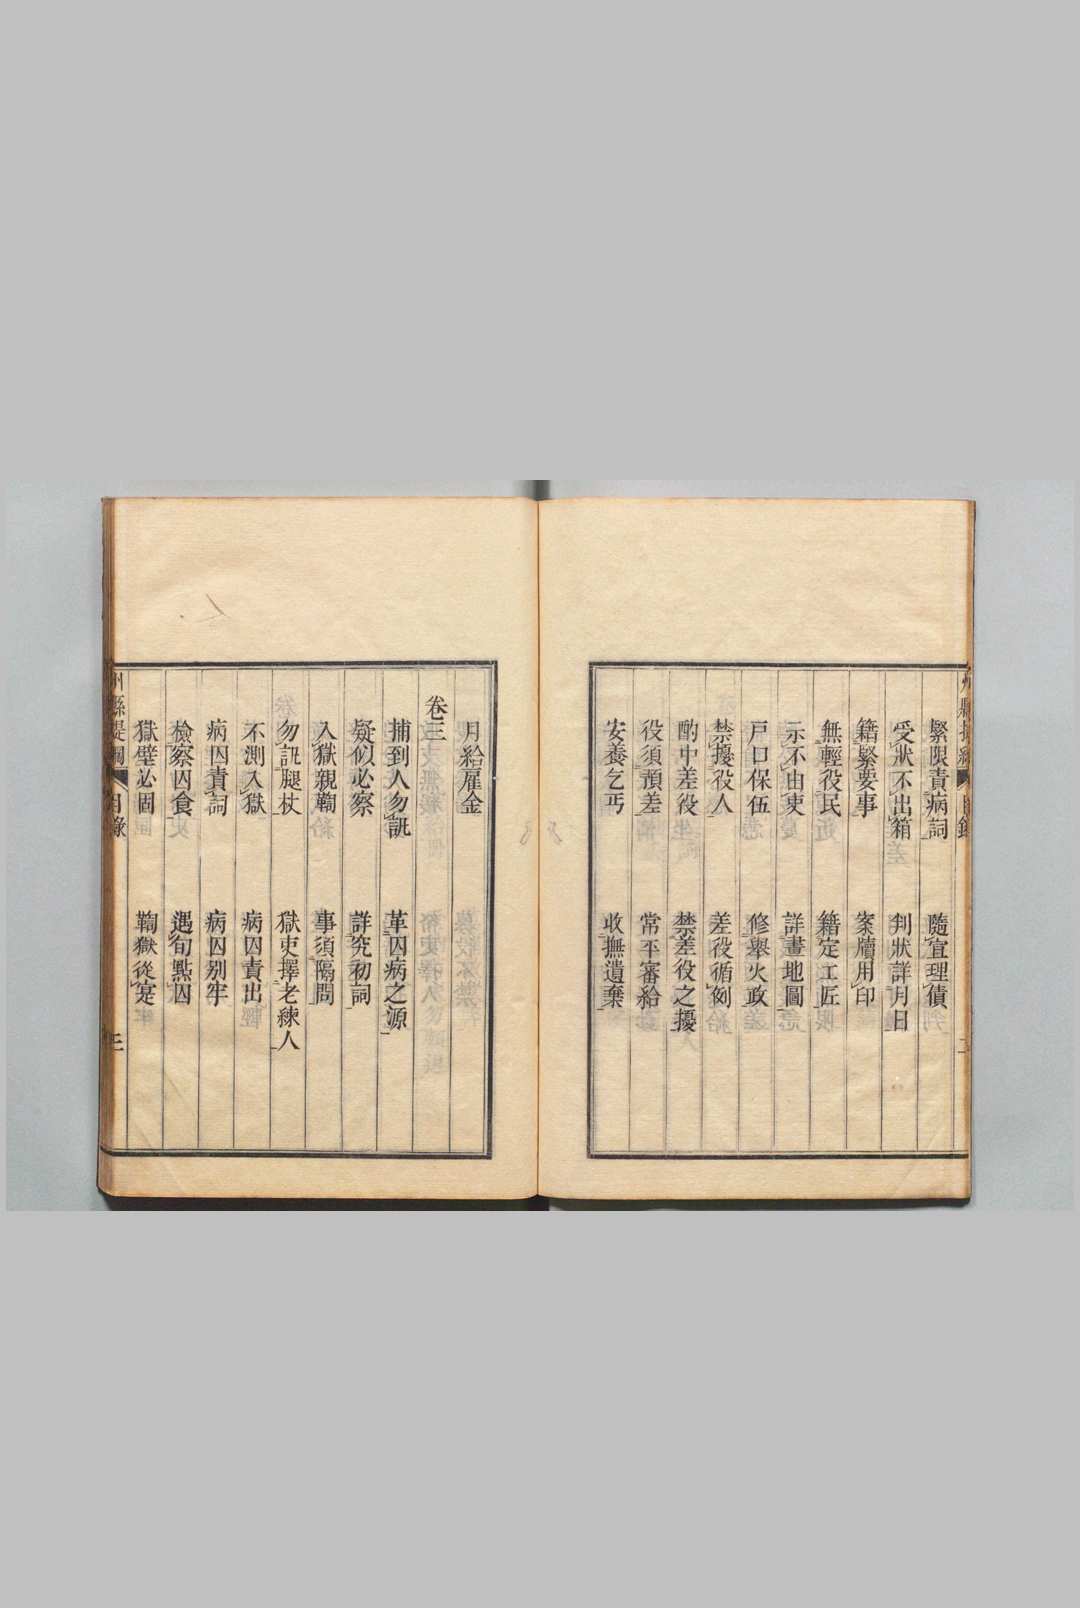 緊限責病詞　隨宜理債
受狀不出箱　判狀詳月日
籍緊要事　案牘用印
無輕役民　籍定工匠
示不由吏　詳畫地圖
戸口保伍　修舉火政
禁擾役人　差役循例
酌中差役　禁差役之擾
役須預差　常平審給
安養乞丐　收撫遺棄
月給雇金
卷三
捕到人勿訊　革囚病之源
疑似必察　詳究初詞
入獄親鞫　事須隔問
勿訊腿杖　獄吏擇老練人
不測入獄　病囚責出
病囚責詞　病囚别牢
檢察囚食　遇旬點囚
獄壁必固　鞫獄從寔
州縣提綱　目錄　三